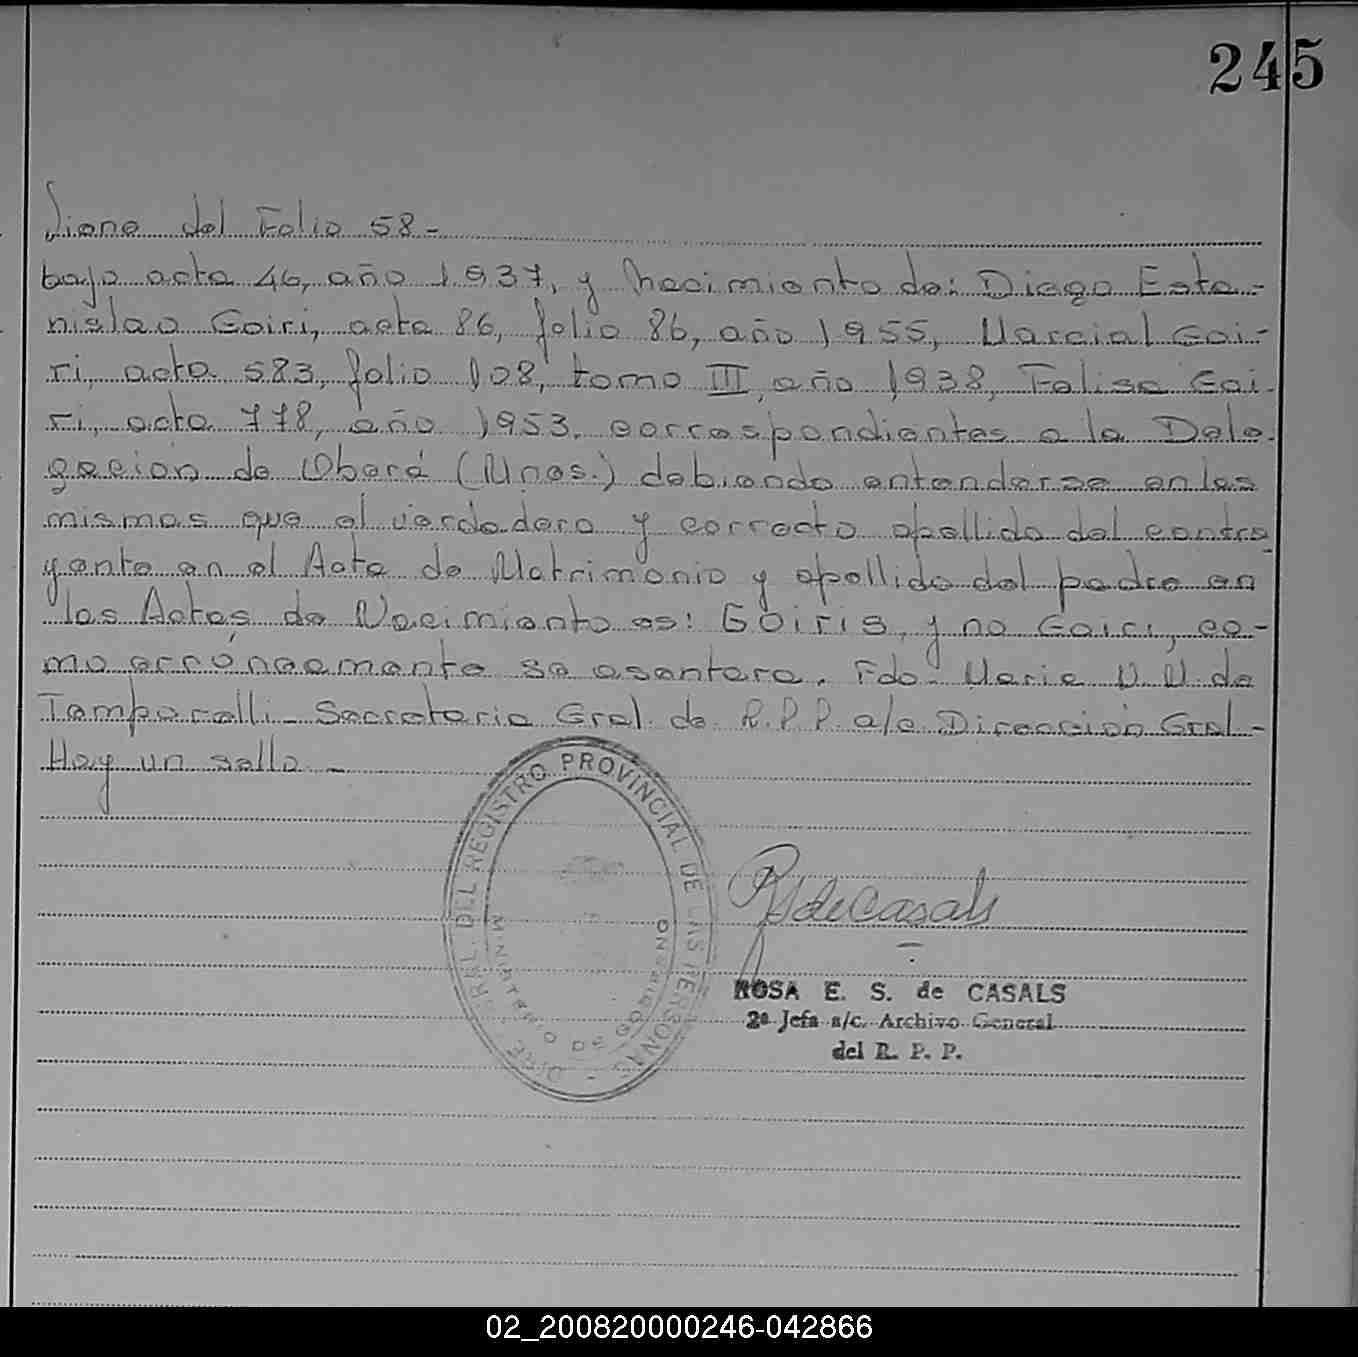 245
Viene del Folio 58-
bajo acta 46, año 1937, y Nacimiento de: Diego Esta-
nislao Goiri, acta 86, folio 86, año 1955, Marcial Goi-
ri, acta 583, folio 108, tomo III, año 1938, Felisa Goi-
ri, acta 778, año 1953, correspondientes a la Dele-
gación de Oberá (Mnes.) debiendo entenderse en las
mismas que el verdadero y correcto apellido del contra
yente en el Acta de Matrimonio y apellido del padre en
las Actas de Nacimiento es: GOIRIS, y no Goiri, co-
mo erróneamente se asentara. Fdo. Maria de
Temporelli- Secretaria Gral. de R.P.P. a/c Dirección Gral-
Hay un sello.-
GRAL. DEL REGISTRO PROVINCIAL DE LAS PERSONAS
MINISTERIO DE GOBIERNO
R S de Casals
ROSA E. S. de CASALS
2ª Jefa a/c. Archivo General
del R. P. P.
02_200820000246-042866